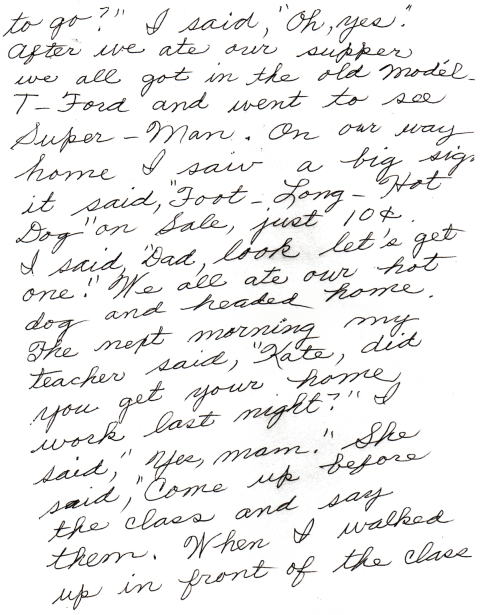 to go?" I said, "Oh, yes".
After we ate our supper
we all got in the old Model-
T-Ford and went to see
Super-Man. On our way
home I saw a big sign
it said, "Foot-Long-Hot
Dog" on Sale, just 10¢.
I said, "Dad, look let's get
one." We all ate our hot
dog and headed home.
The next morning my
teacher said, "Kate, did
you get your home
work last night?" I
said, "Yes, mam." She
said, "Come up before
the class and say
them. When I walked
up in front of the class